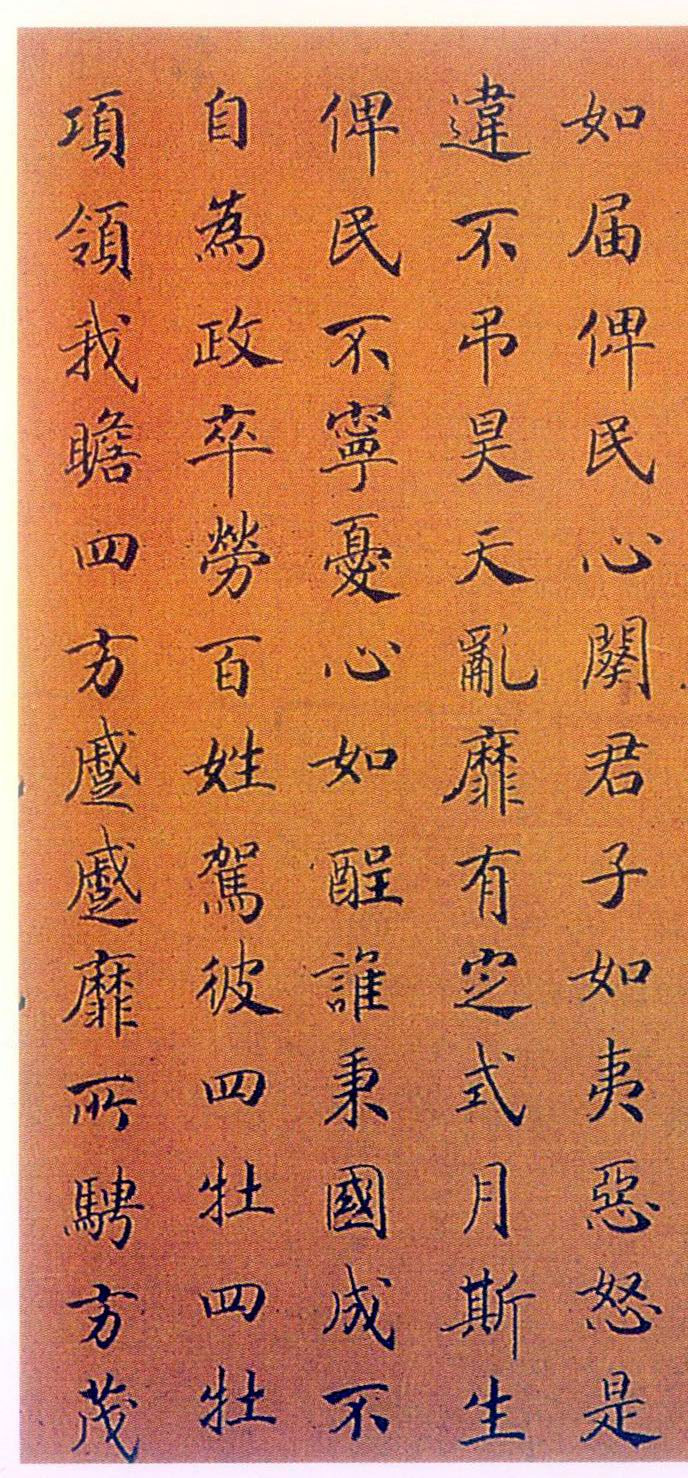 如届俾民心闋君子如夷惡怒是
違不弔昊天亂靡有定式月斯生
俾民不寧憂心如酲誰秉國成不
自為政卒勞百姓駕彼四牡四牡
項領我瞻四方蹙蹙靡所騁方茂